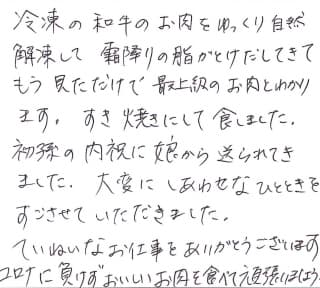 冷凍の和牛のお肉をゆっくり自然
解凍して 霜降りの脂がとけだしてきて
もう見ただけで最上級のお肉とわかり
ます。すき焼きにして食しました。
初孫の内祝に娘から送られてき
ました。大変にしあわせなひとときを
すごさせていただきました。
ていねいなお仕事をありがとうございます
コロナに負けずおいしいお肉を食べて頑張りましょう